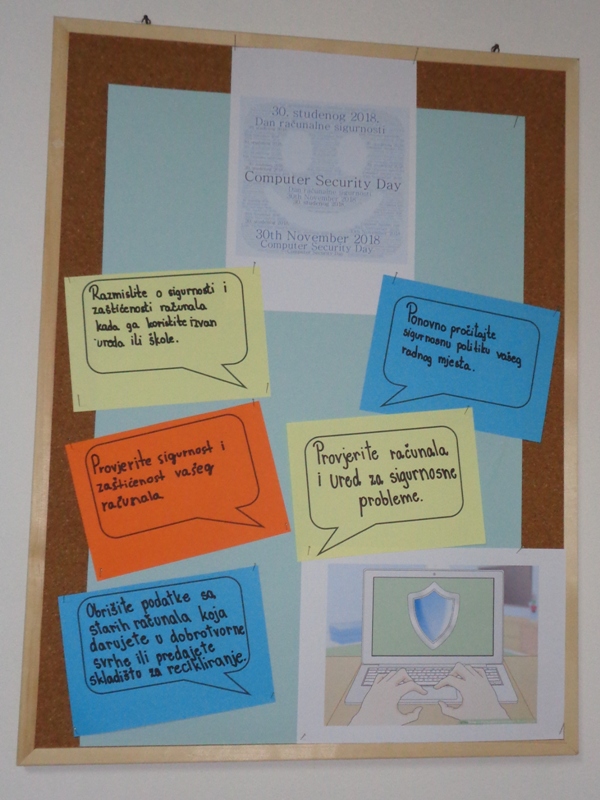 30. studenog 2018.
Dan računalne sigurnosti
Computer Security Day
Dan računalne sigurnosti
30th November 2018
30. studenog 2018.
30th November 2018
Computer Security Day
Razmislite o sigurnosti i
zaštićenosti računala
kada ga koristite izvan
ureda ili škole.
Ponovno pročitajte
sigurnosnu politiku vašeg
radnog mjesta.
Provjerite sigurnost i
zaštićenost vašeg
računala
Provjerite računala
i ured za sigurnosne
probleme.
Obrišite podatke sa
starih računala koja
darujete u dobrotvorne
svrhe ili predajete
skladišto za recikliranje.